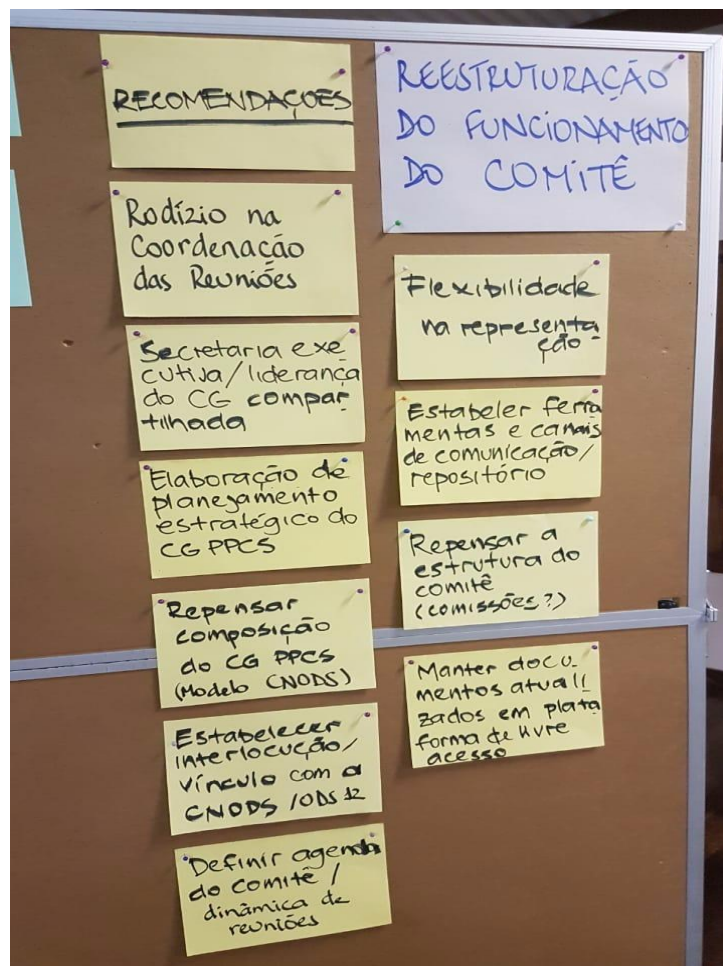 RECOMENDAÇÕES
Rodízio na
Coordenação
das Reuniões
Secretaria exe
cutiva/liderança
do CG compar
tilhada
Elaboração de
planejamento
estratégico do
CG PPCS
Repensar
composição
do CG PPCS
(Modelo CNODS)
Estabelecer
interlocução/
vínculo com a
CNODS /ODS 12
Definir agenda
do comitê /
dinâmica de
reuniões
REESTRUTURAÇÃO
DO FUNCIONAMENTO
DO COMITÊ
Flexibilidade
na representa
ção
Estabeler ferra
mentas e canais
de comunicação/
repositório
Repensar a
estrutura do
comitê
(comissões?)
Manter docu-
mentos atuali
zados em plata
forma de livre
acesso